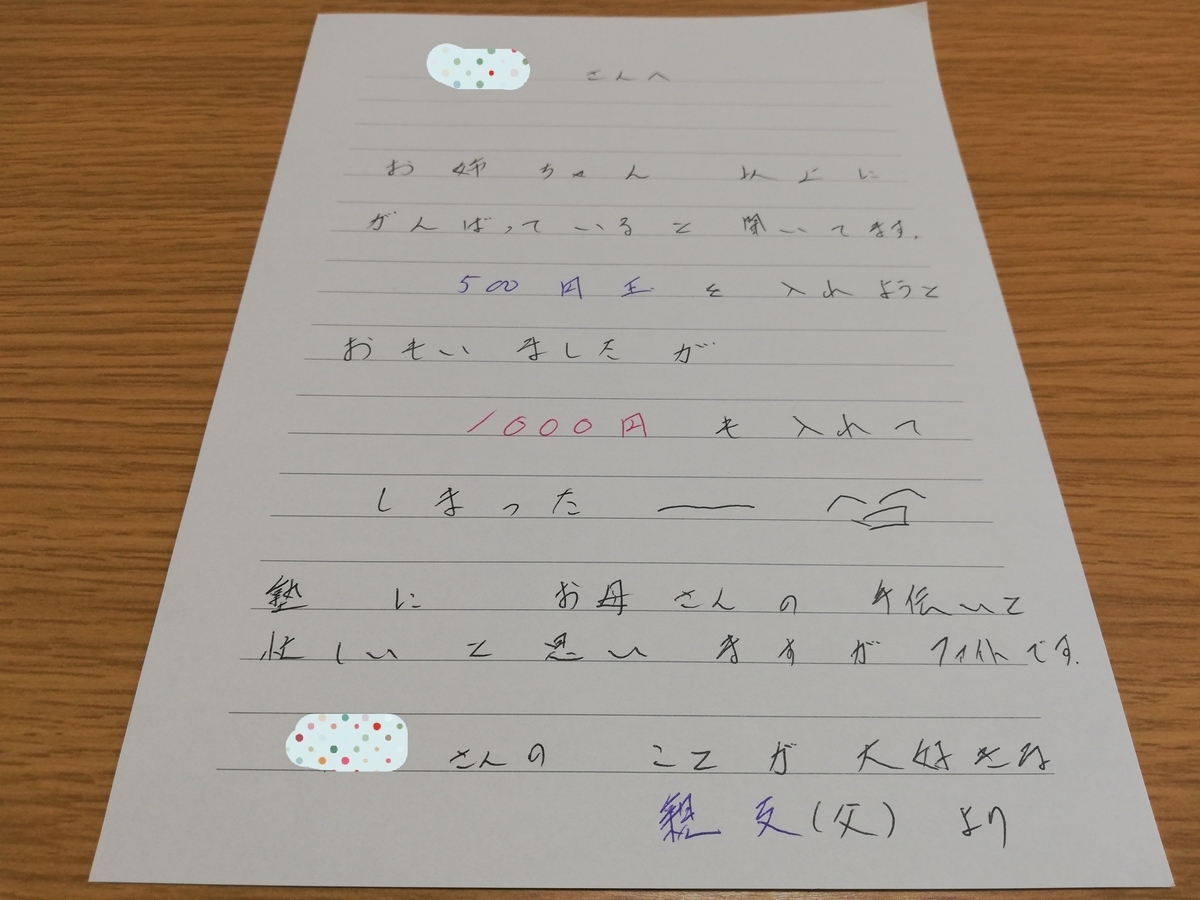 さんへ
お姉ちゃん 以上に
がんばっていると聞いてます。
500円玉を入れようと
おもいましたが
1000円も入れて
しまったー
塾に お母さんの手伝いと
忙しいと思いますがファイトです。
さんの ことが大好きな
親友(父)より